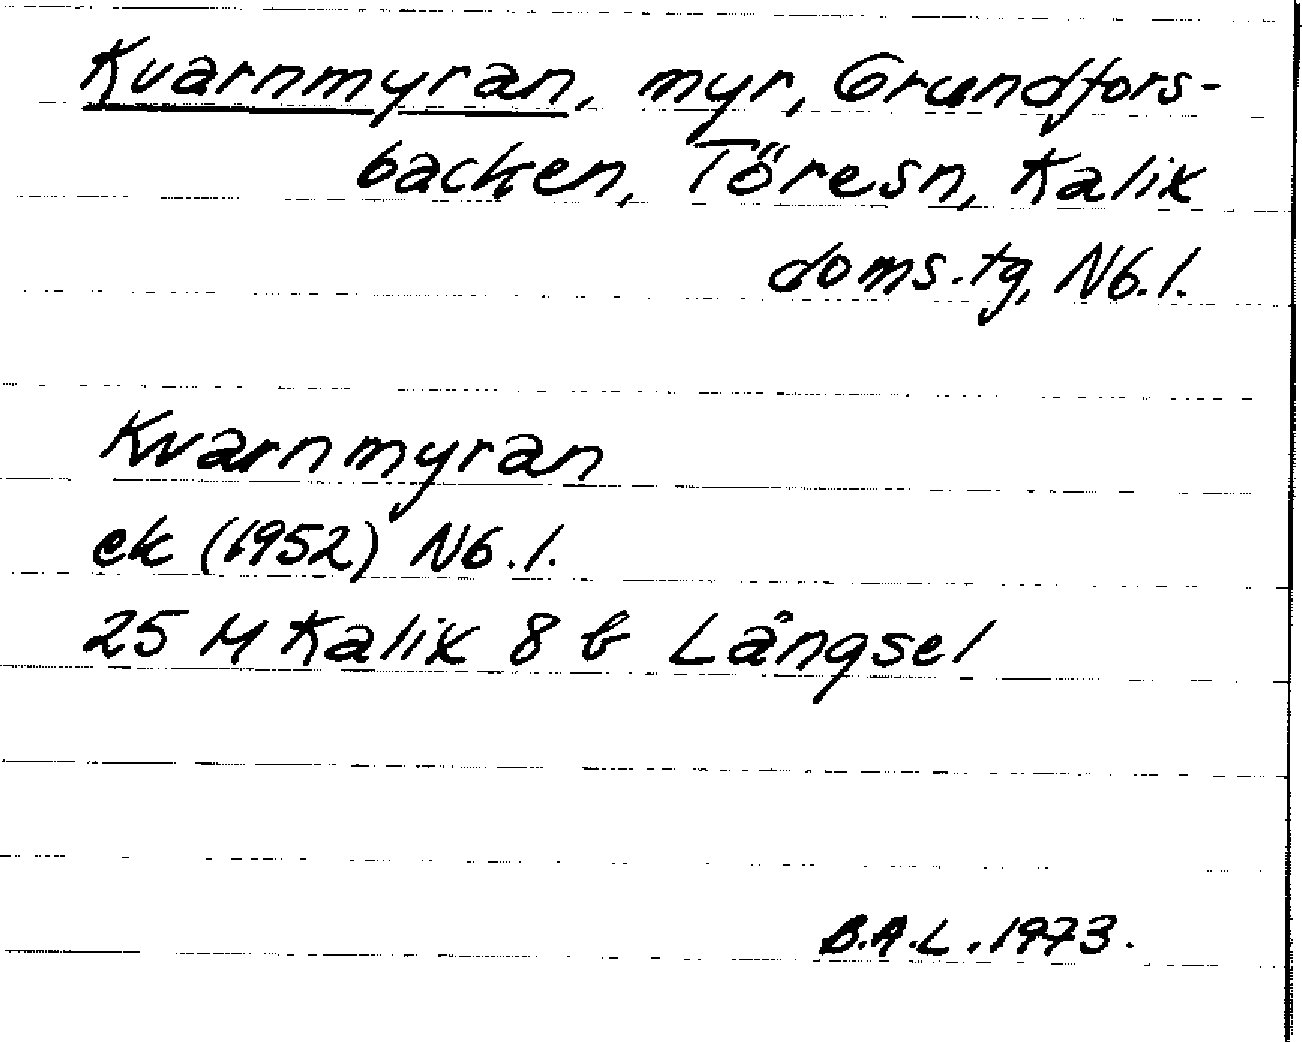 Kvarnmyran, myr, Grundfors-
backen, Töresn, Kalix
doms.tg, Nb.l.
Kvarnmyran
ek (1952) Nb.l.
25 M Kalix 8 b Långsel
B.A.L. 1973.